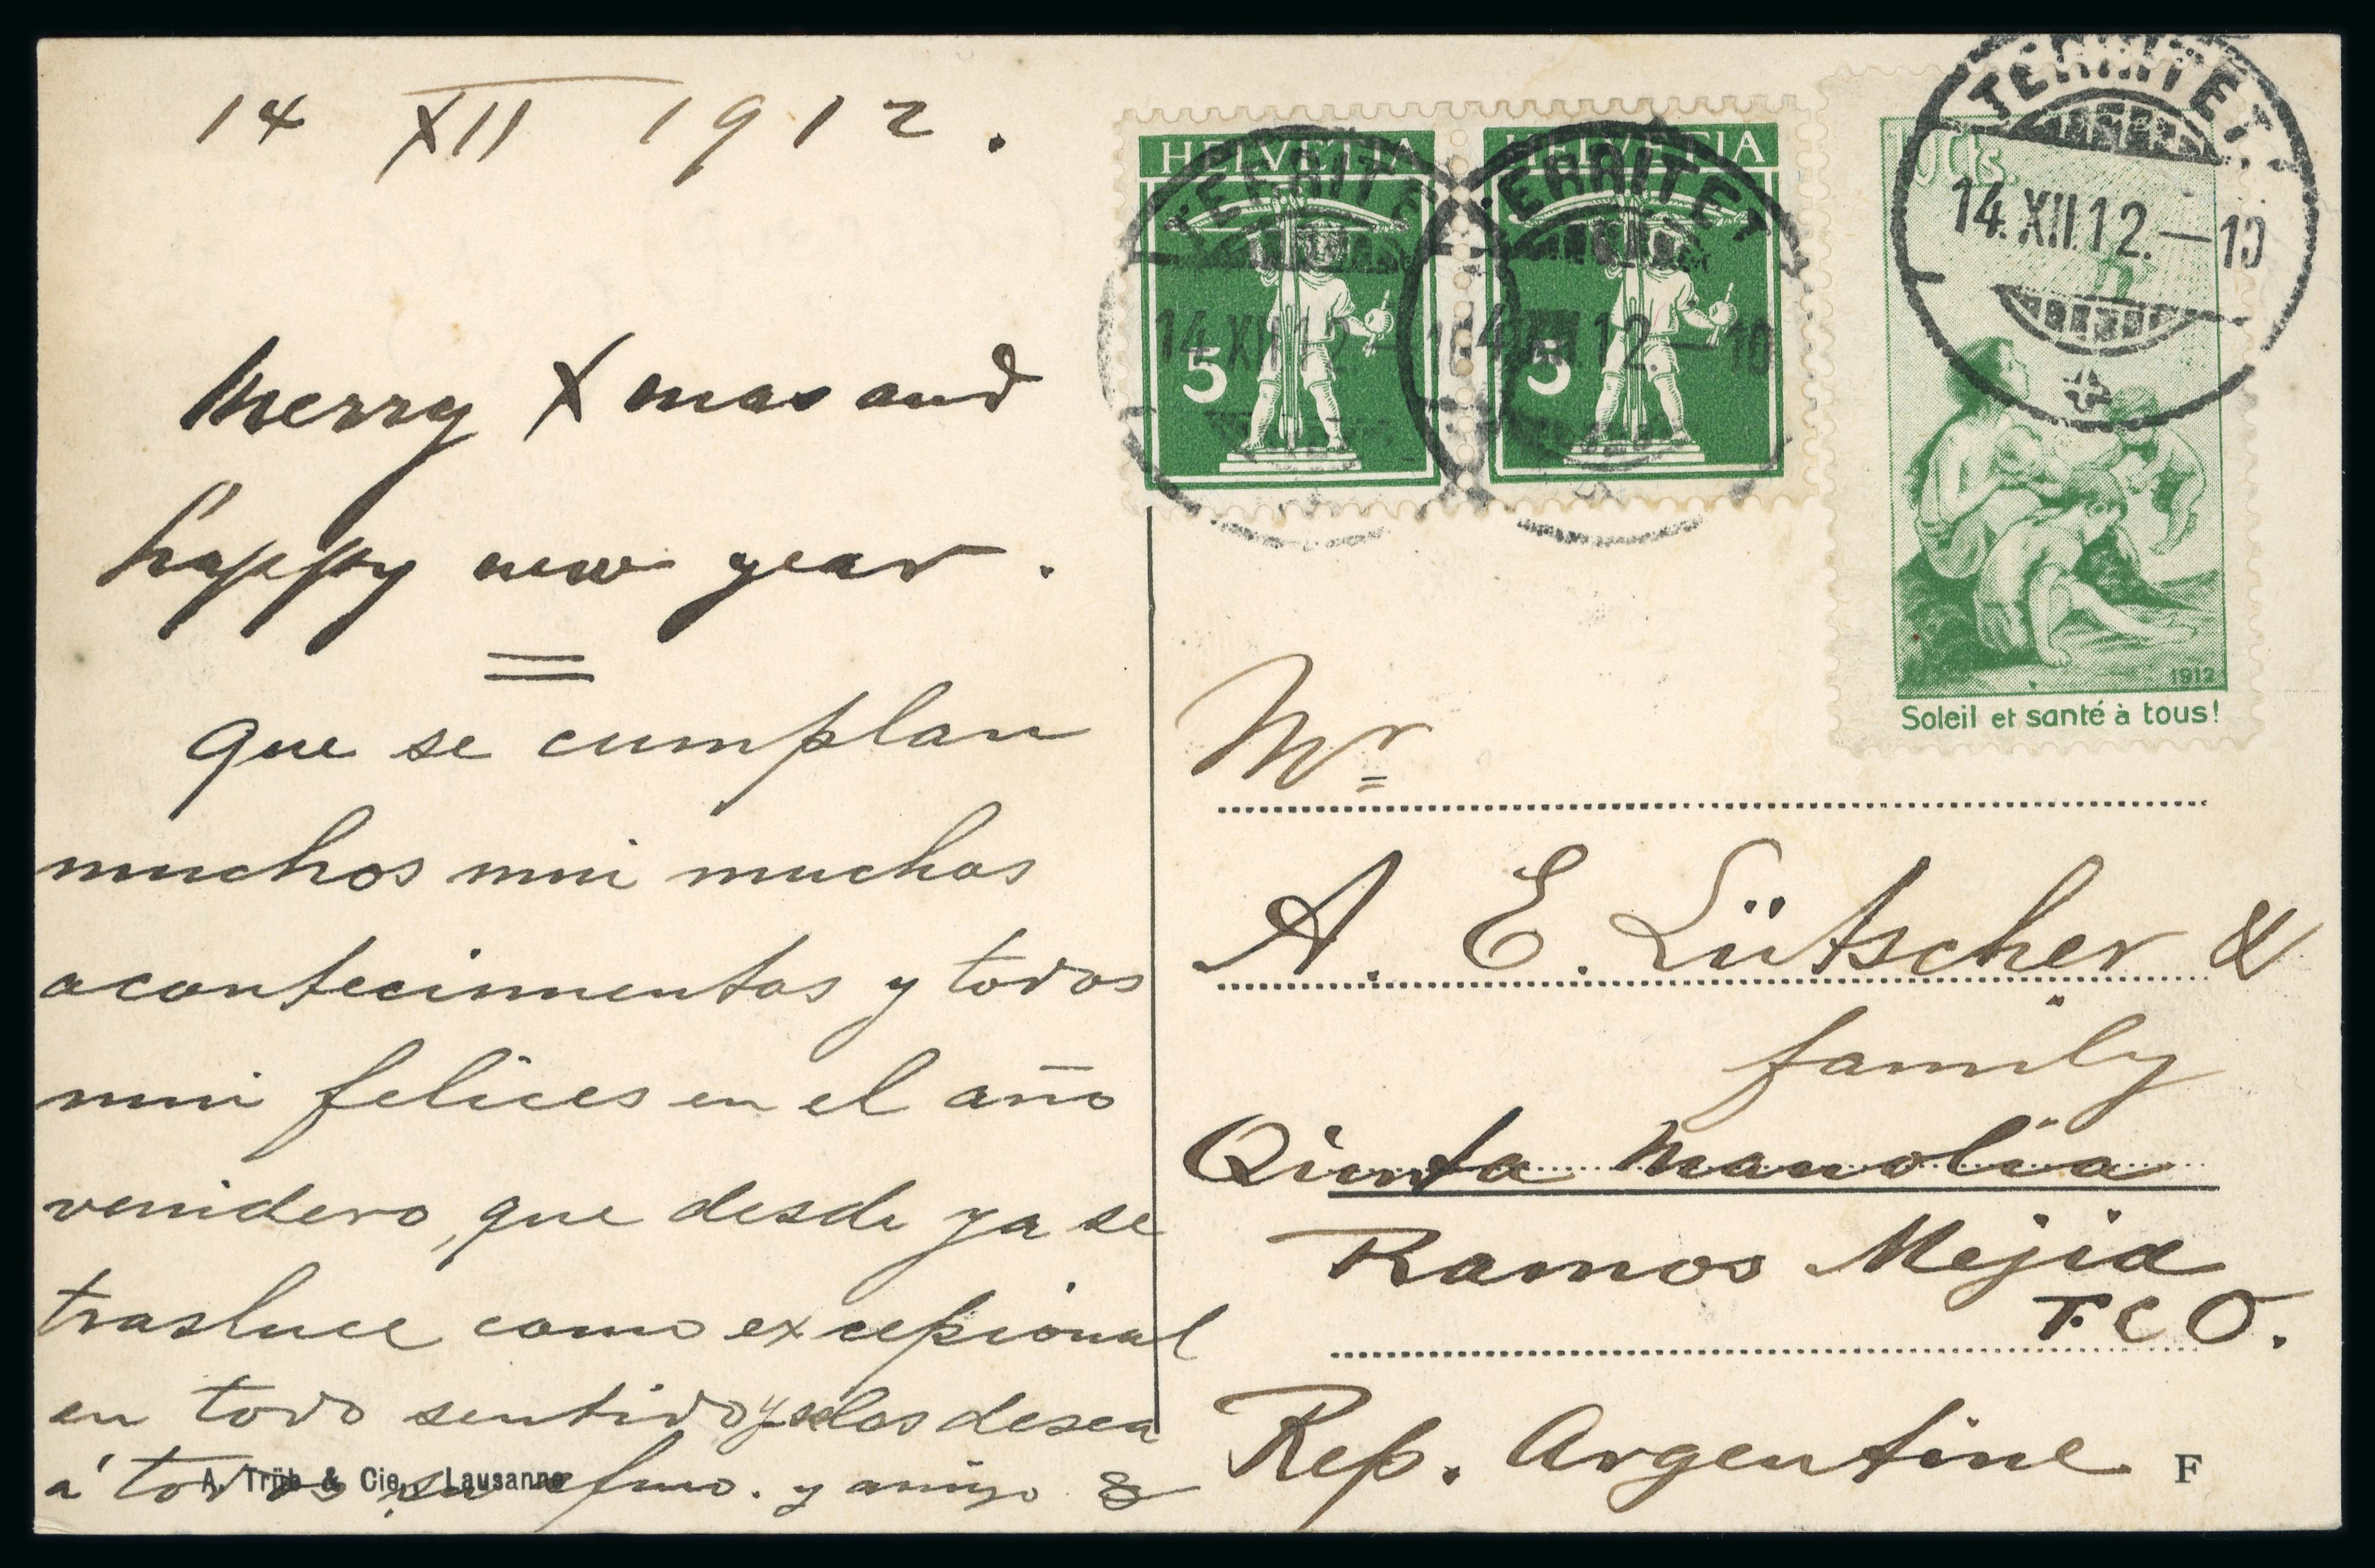 14 XII 1912.
Merry Xmas and
happy new year.
que se cumplan
muchos mui muchos
acontecimientos y todos
mui felices en el año
venidero, que desde ya se
trasluce como excepcional
en todo sentido y los desea
á todos su afmo. y amigo
A. Trüb & Cie., Lausanne
HELVETIA
5
HELVETIA
5
TERRITET
14.XII.12.–10
TERRITET
14.XII.12.–10
TERRITET
14.XII.12.–10
10 Cts.
1912
Soleil et santé à tous!
Mr
A. E. Lütscher &
family
Quinta Manolia
Ramos Mejia
F.C.O.
Rep. Argentine
F